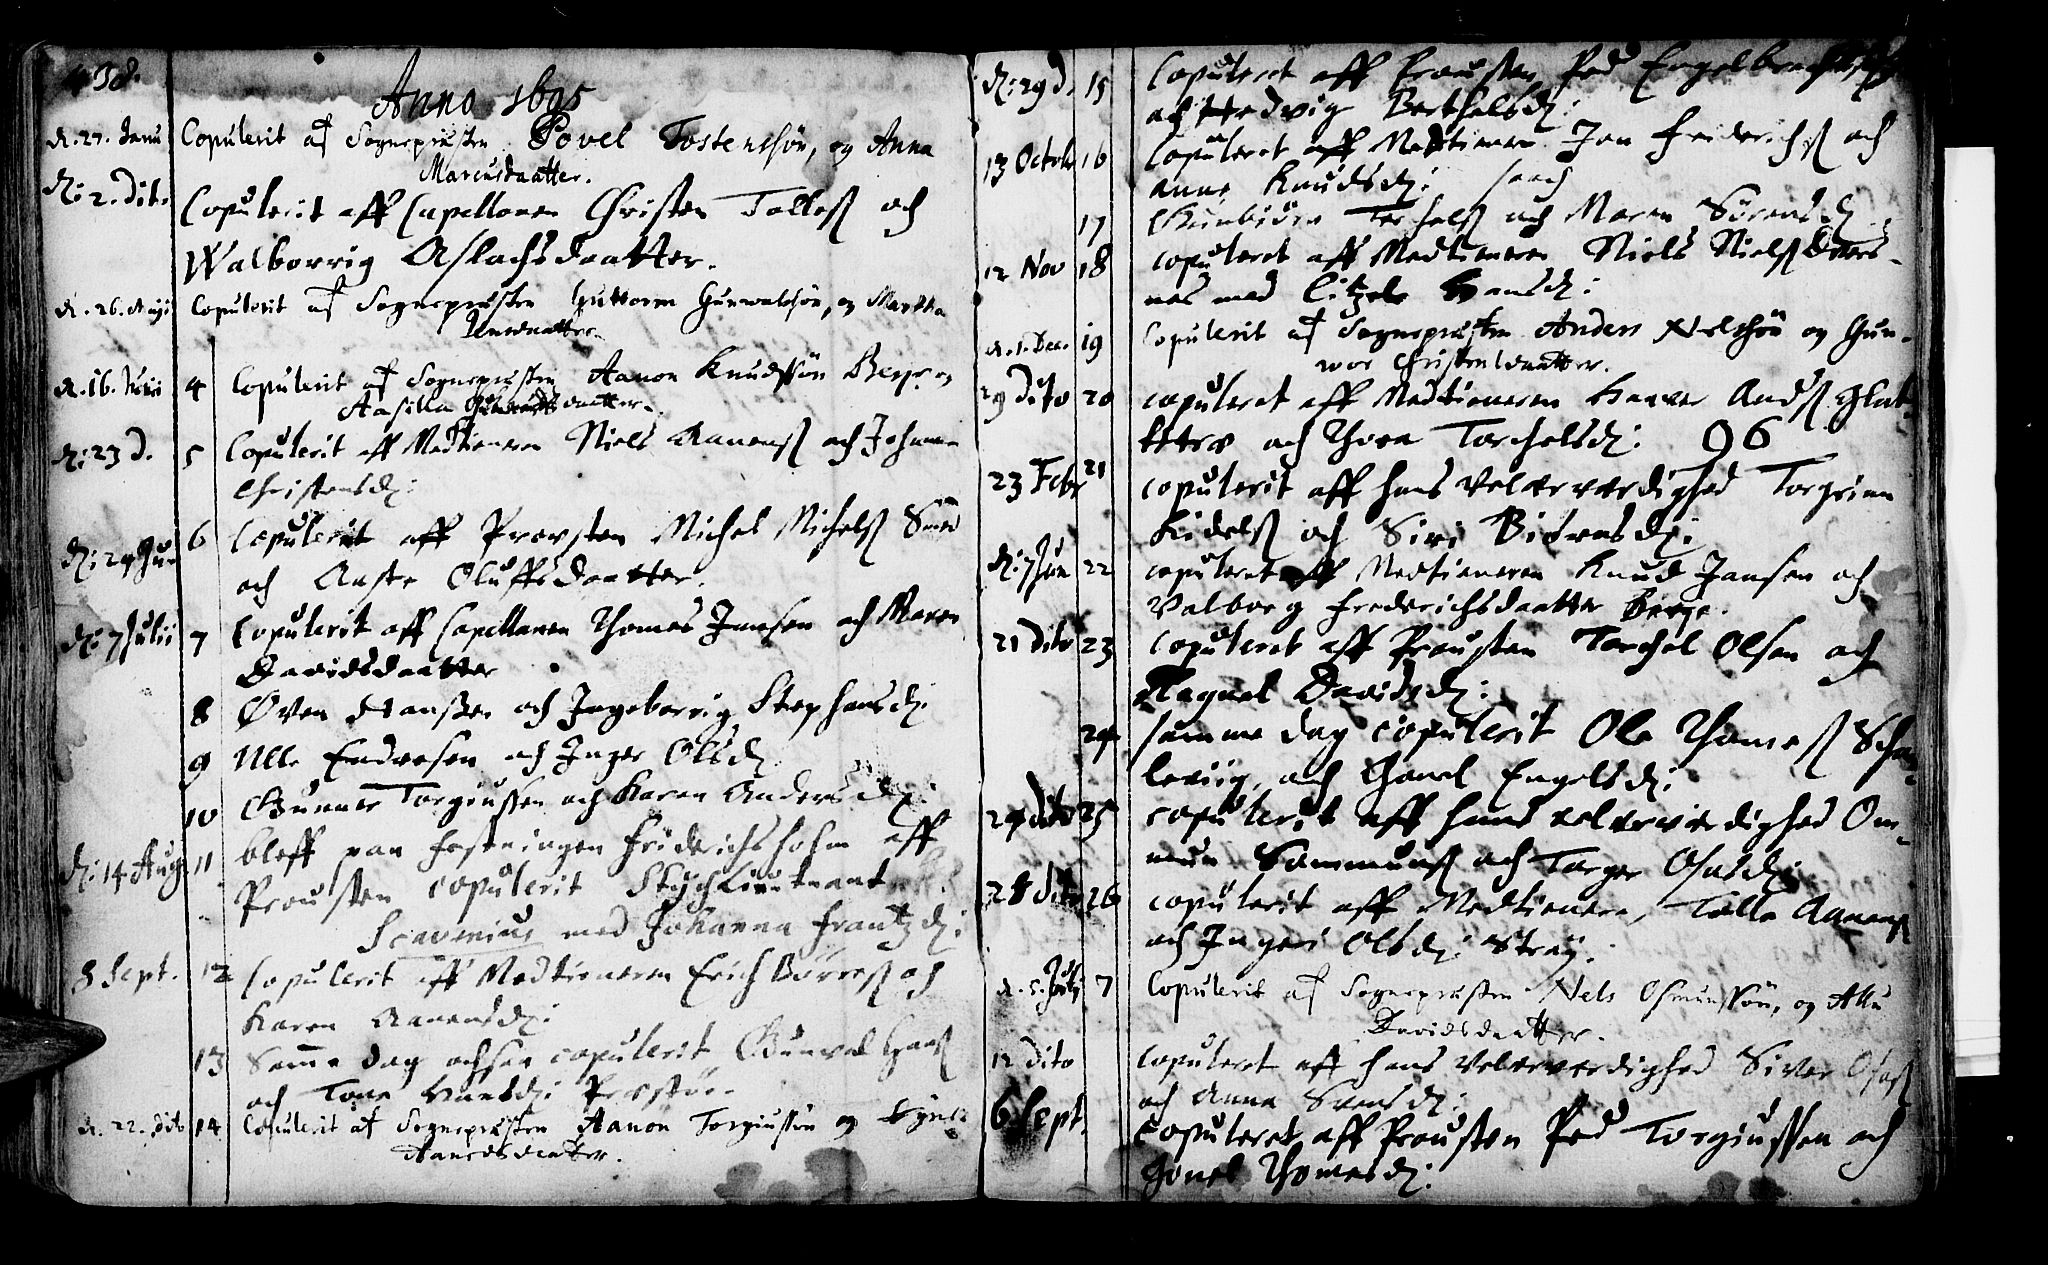 438.
Anno 1695
d. 27. Janu Copulerit af Sognepresten Povel Tostensøn, og Anna
Marcusdaatter.
d: 2. Dito Copulerit aff Capellanen Christen Tolless och
Walborrig Aslachsdaatter.
d. 26. Maji Copulerit af Sognepresten Guttorm Gunwaldsøn, og Martha
daatter.
d. 16. Junii 4 Copulerit af Sognepresten Aanon Knudssøn Berge og
Aasilla daatter.
d: 23 d. 5 Copulerit aff Medtieneren Niels Aanenss och Johanne
Christensd:
d: 29 Jun 6 Copulerit aff Provsten Michel Michelss Smed
och Aaste Oluffsdaatter.
d: 7 Julii 7 Copulerit aff Capellanen Thomes Jansen och Maren
Davidsdaatter
8 Øven Hanssen och Ingeborrig Stephensd:
9 Ulle Endresen och Inger Olsd:
10 Gunner Torgiussen och Karen Andersd:
d: 14 Aug. 11 bleff paa Festningen Friderichsholm aff
Prousten copulerit Stychlieutnant
Scavenius med Johanna Frantzd:
8 Sept. 12 Copulerit aff Medtieneren Erich Børress och
Karen Aanensd:
13 Samme dag ochsaa copulerit Gunvald Hanss
och Tone Hansd:
d. 22. dito 14 Copulerit af Sognepresten Aanon Torgiussøn og
Aanendsdaatter.
d: 29 d. 15 Copuleret aff Prousten Ped Engelbrechts
och Hedvig Berthelsd:
13 Octobr 16 Copuleret aff Medtieneren Jon Friderichss och
anne Knudsd:
17 Gunbiørn Terchelss och Maren Sørensd:
12 Nov 18 copuleret aff Medtieneren Niels Nielss
nes med Citzele Hansd:
d. 1. Dec. 19 Copulerit af Sognepresten Anders Nelssøn og Gun-
wor Christensdaatter.
29 Dito 20 copuleret aff Medtieneren Ands
och Thora Torchelsd: 96
23 Febr 21 copulerit aff hans velærværdighed Torgrim
Kidelss och Siri Biørnsd:
d: 7 Jun 22 copuleret aff Medtieneren Knud Jansen och
Valborg Frederichsdaatter Berge.
21 Dito 23 copuleret aff Prousten Torchel Olsen och
Ragnel Davidsd:
24 samme dag copulerit Ole Thomess
och Gonel Engelsd:
24 dito 25 copulerit aff hans velærværdighed Om-
mun Sammunss och Torger Osuldsd:
28 dito 26 copulerit aff Medtieneren, Tolle Aanenss
och Ingeri Olsd: Stray.
d. 5. Julij 7 Copulerit af Sognepresten Nels Osmunssøn, og
Davidsdaatter.
12 Dito copuleret aff hans velærværdighed Siver
och Anna Svensd:
6 Sept. Copuleret aff Prousten Ped Torgiussen och
Gonel Thomesd: